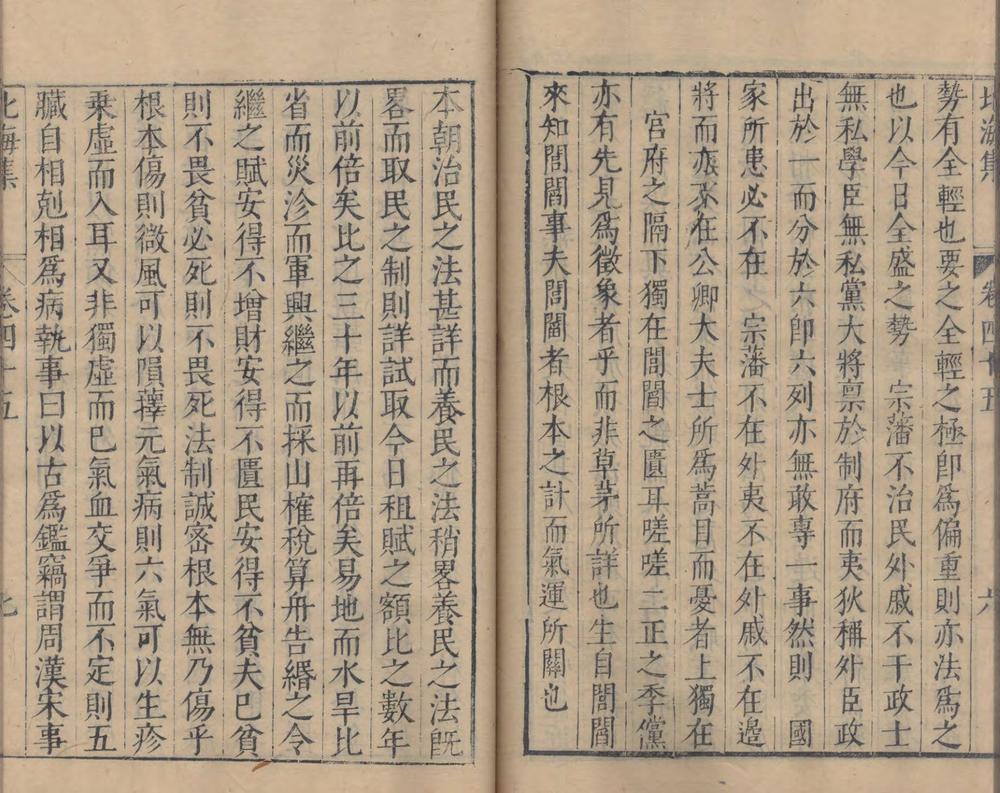 北海集 卷四十五 六
勢有全輕也要之全輕之極卽爲偏重則亦法爲之
也以今日全盛之勢 宗藩不治民外戚不干政士
無私學臣無私黨大將禀於制府而夷狄稱外臣政
出於一而分於六卽六列亦無敢專一事然則 國
家所患必不在 宗藩不在外夷不在外戚不在邉
將而亦不在公卿大夫士所爲蒿目而憂者上獨在
宮府之隔下獨在閭閻之匱耳嗟嗟二正之季儻
亦有先見爲徵象者乎而非草茅所詳也生自閭閻
來知閭閻事夫閭閻者根本之計而氣運所關也
本朝治民之法甚詳而養民之法稍畧養民之法旣
畧而取民之制則詳試取今日租賦之額比之數年
以前倍矣比之三十年以前再倍矣易地而水旱比
省而災沴而軍興繼之而採山榷稅算舟告緡之令
繼之賦安得不增財安得不匱民安得不貧夫巳貧
則不畏貧必死則不畏死法制誠密根本無乃傷乎
根本傷則微風可以隕蘀元氣病則六氣可以生疹
乘虛而入耳又非獨虛而巳氣血交爭而不定則五
臟自相剋相爲病執事曰以古爲鑑竊謂周漢宋事
北海集 卷四十五 七